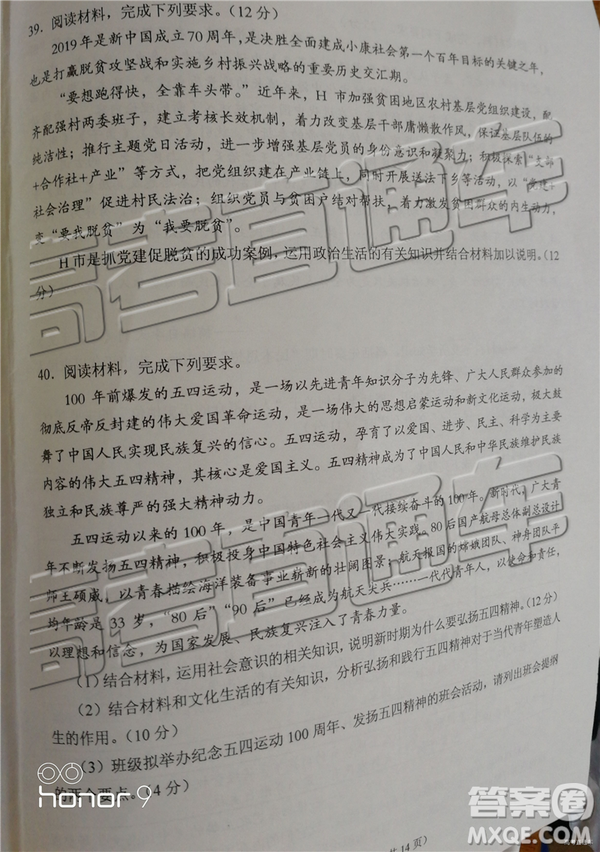 39. 阅读材料，完成下列要求。（12 分）
2019 年是新中国成立 70 周年，是决胜全面建成小康社会第一个百年目标的关键之年，
也是打赢脱贫攻坚战和实施乡村振兴战略的重要历史交汇期。
“要想跑得快，全靠车头带。”近年来，H 市加强贫困地区农村基层党组织建设，配
齐配强村两委班子，建立考核长效机制，着力改变基层干部庸懒散作风，保证基层队伍的
纯洁性；推行主题党日活动，进一步增强基层党员的身份意识和凝聚力；积极探索“支部
+合作社+产业”等方式，把党组织建在产业链上，同时开展送法下乡等活动，以
社会治理”促进村民法治；组织党员与贫困户结对帮扶，着力激发贫困群众的内生动力，
变“要我脱贫”为“我要脱贫”。
H 市是抓党建促脱贫的成功案例，运用政治生活的有关知识并结合材料加以说明。（12
分）
40. 阅读材料，完成下列要求。
100 年前爆发的五四运动，是一场以先进青年知识分子为先锋、广大人民群众参加的
彻底反帝反封建的伟大爱国革命运动，是一场伟大的思想启蒙运动和新文化运动，主要
舞了中国人民实现民族复兴的信心。五四运动，孕育了以爱国、进步、民主、科学为主要
内容的伟大五四精神，其核心是爱国主义。五四精神成为了中国人民和中华民族维护民族
独立和民族尊严的强大精神动力。
五四运动以来的 100 年，是中国青年一代又一代接续奋斗的 100 年。新时代，广大青
年不断发扬五四精神，积极投身中国特色社会主义伟大实践。80 后国产航母总体副总设计
师王硕威，以青春描绘海洋装备事业崭新的壮阔图景；航天报国的嫦娥团队、神舟团队平
均年龄是 33 岁，“80 后”“90 后”已经成为航天尖兵……一代代青年人，以使命和责任，
以理想和信念，为国家发展、民族复兴注入了青春力量。
（1）结合材料，运用社会意识的相关知识，说明新时期为什么要弘扬五四精神。（12 分）
（2）结合材料和文化生活的有关知识，分析弘扬和践行五四精神对于当代青年塑造人
生的作用。（10 分）
（3）班级拟举办纪念五四运动 100 周年、发扬五四精神的班会活动，请列出班会提纲
的两个要点。（4 分）
共 14 页）
honor 9
高考直通车
高考直通车
高考直通车
答案圈
MXQE.COM